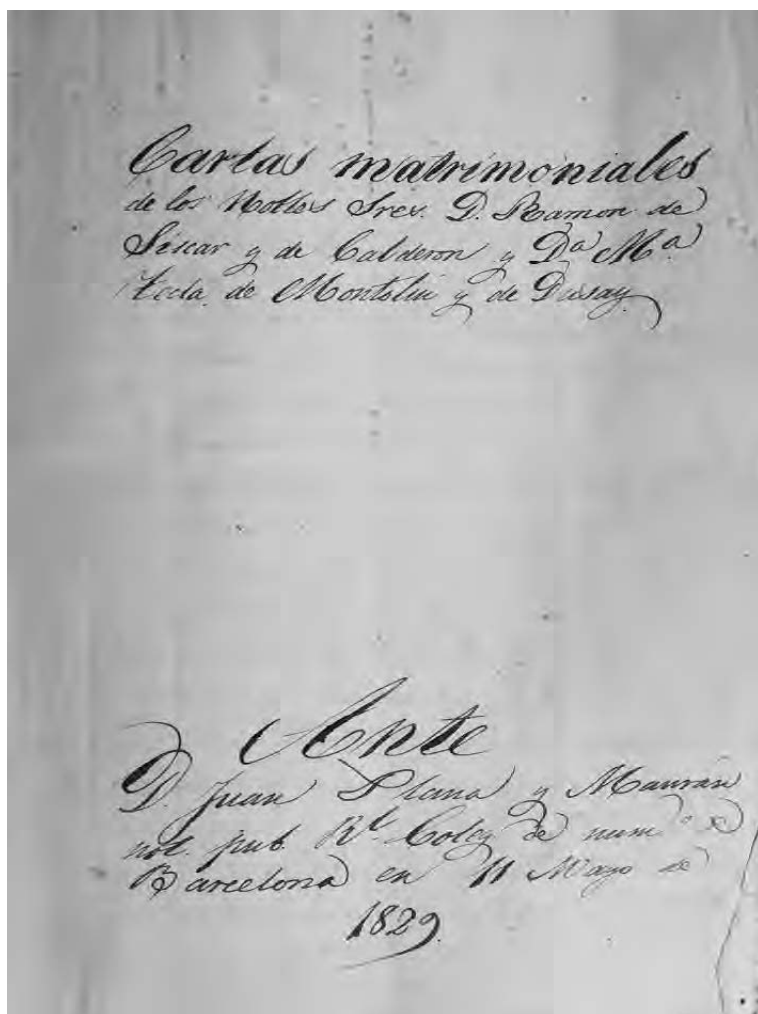 Cartas matrimoniales
de los Nobles Sres. D. Ramon de
Siscar y de Calderon y Dª Mª
Tecla de Montoliu y de Dusay
Ante
D. Juan Plana y Mauran
not. pub. Rl. Coleg de num.º de
Barcelona en 11 Mayo de
1829.